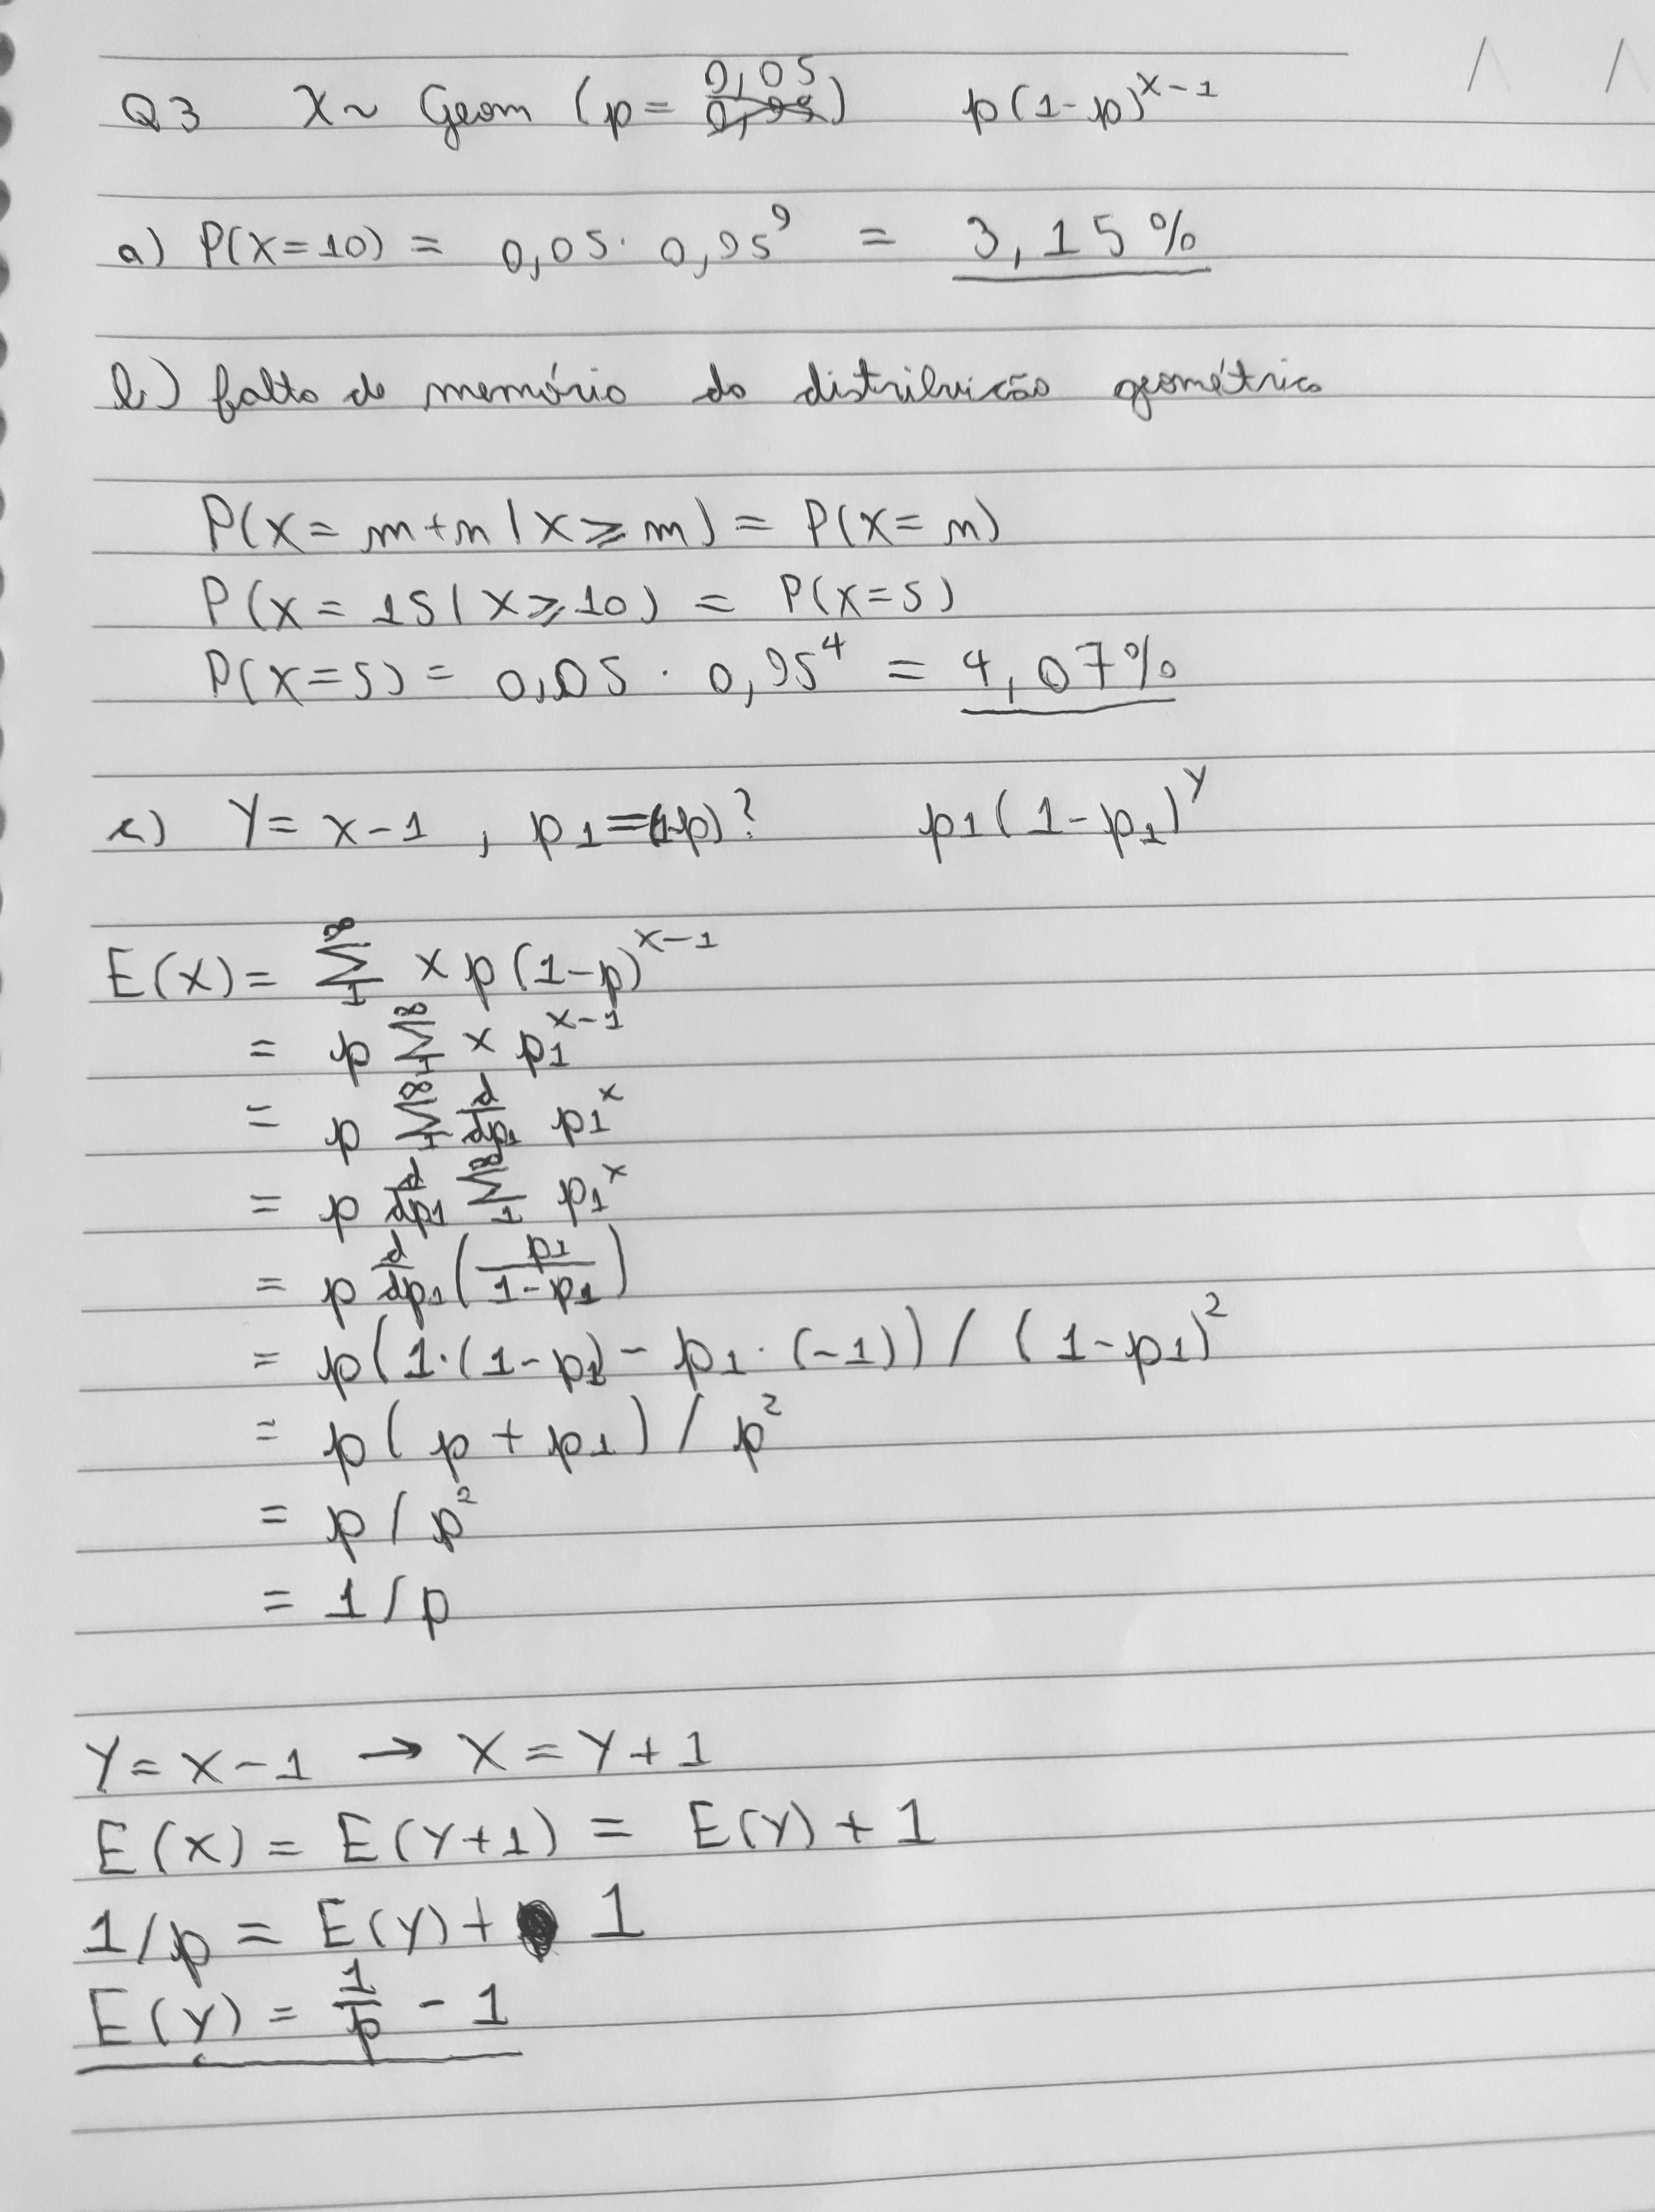 Q3 X ~ Geom (p = 0,05) p(1-p)^{x-1}
a) P(X=10) = 0,05 · 0,95^9 = 3,15%
b) falta de memória da distribuição geométrica
P(X = m+n | X ⩾ m) = P(X = n)
P(X = 15 | X ⩾ 10) = P(X=5)
P(X=5) = 0,05 · 0,95^4 = 4,07%
c) Y = X-1 , p1 = (1-p)? p1(1-p1)^Y
E(X) = ∑_1^∞ x p (1-p)^{x-1}
= p ∑_1^∞ x p1^{x-1}
= p ∑_1^∞ d/dp1 p1^x
= p d/dp1 ∑_1^∞ p1^x
= p d/dp1 (p1/(1-p1))
= p(1·(1-p1) - p1 · (-1)) / (1-p1)^2
= p( p + p1) / p^2
= p / p^2
= 1 / p
Y = X-1 → X = Y+1
E(X) = E(Y+1) = E(Y) + 1
1/p = E(Y) + 1
E(Y) = 1/p - 1